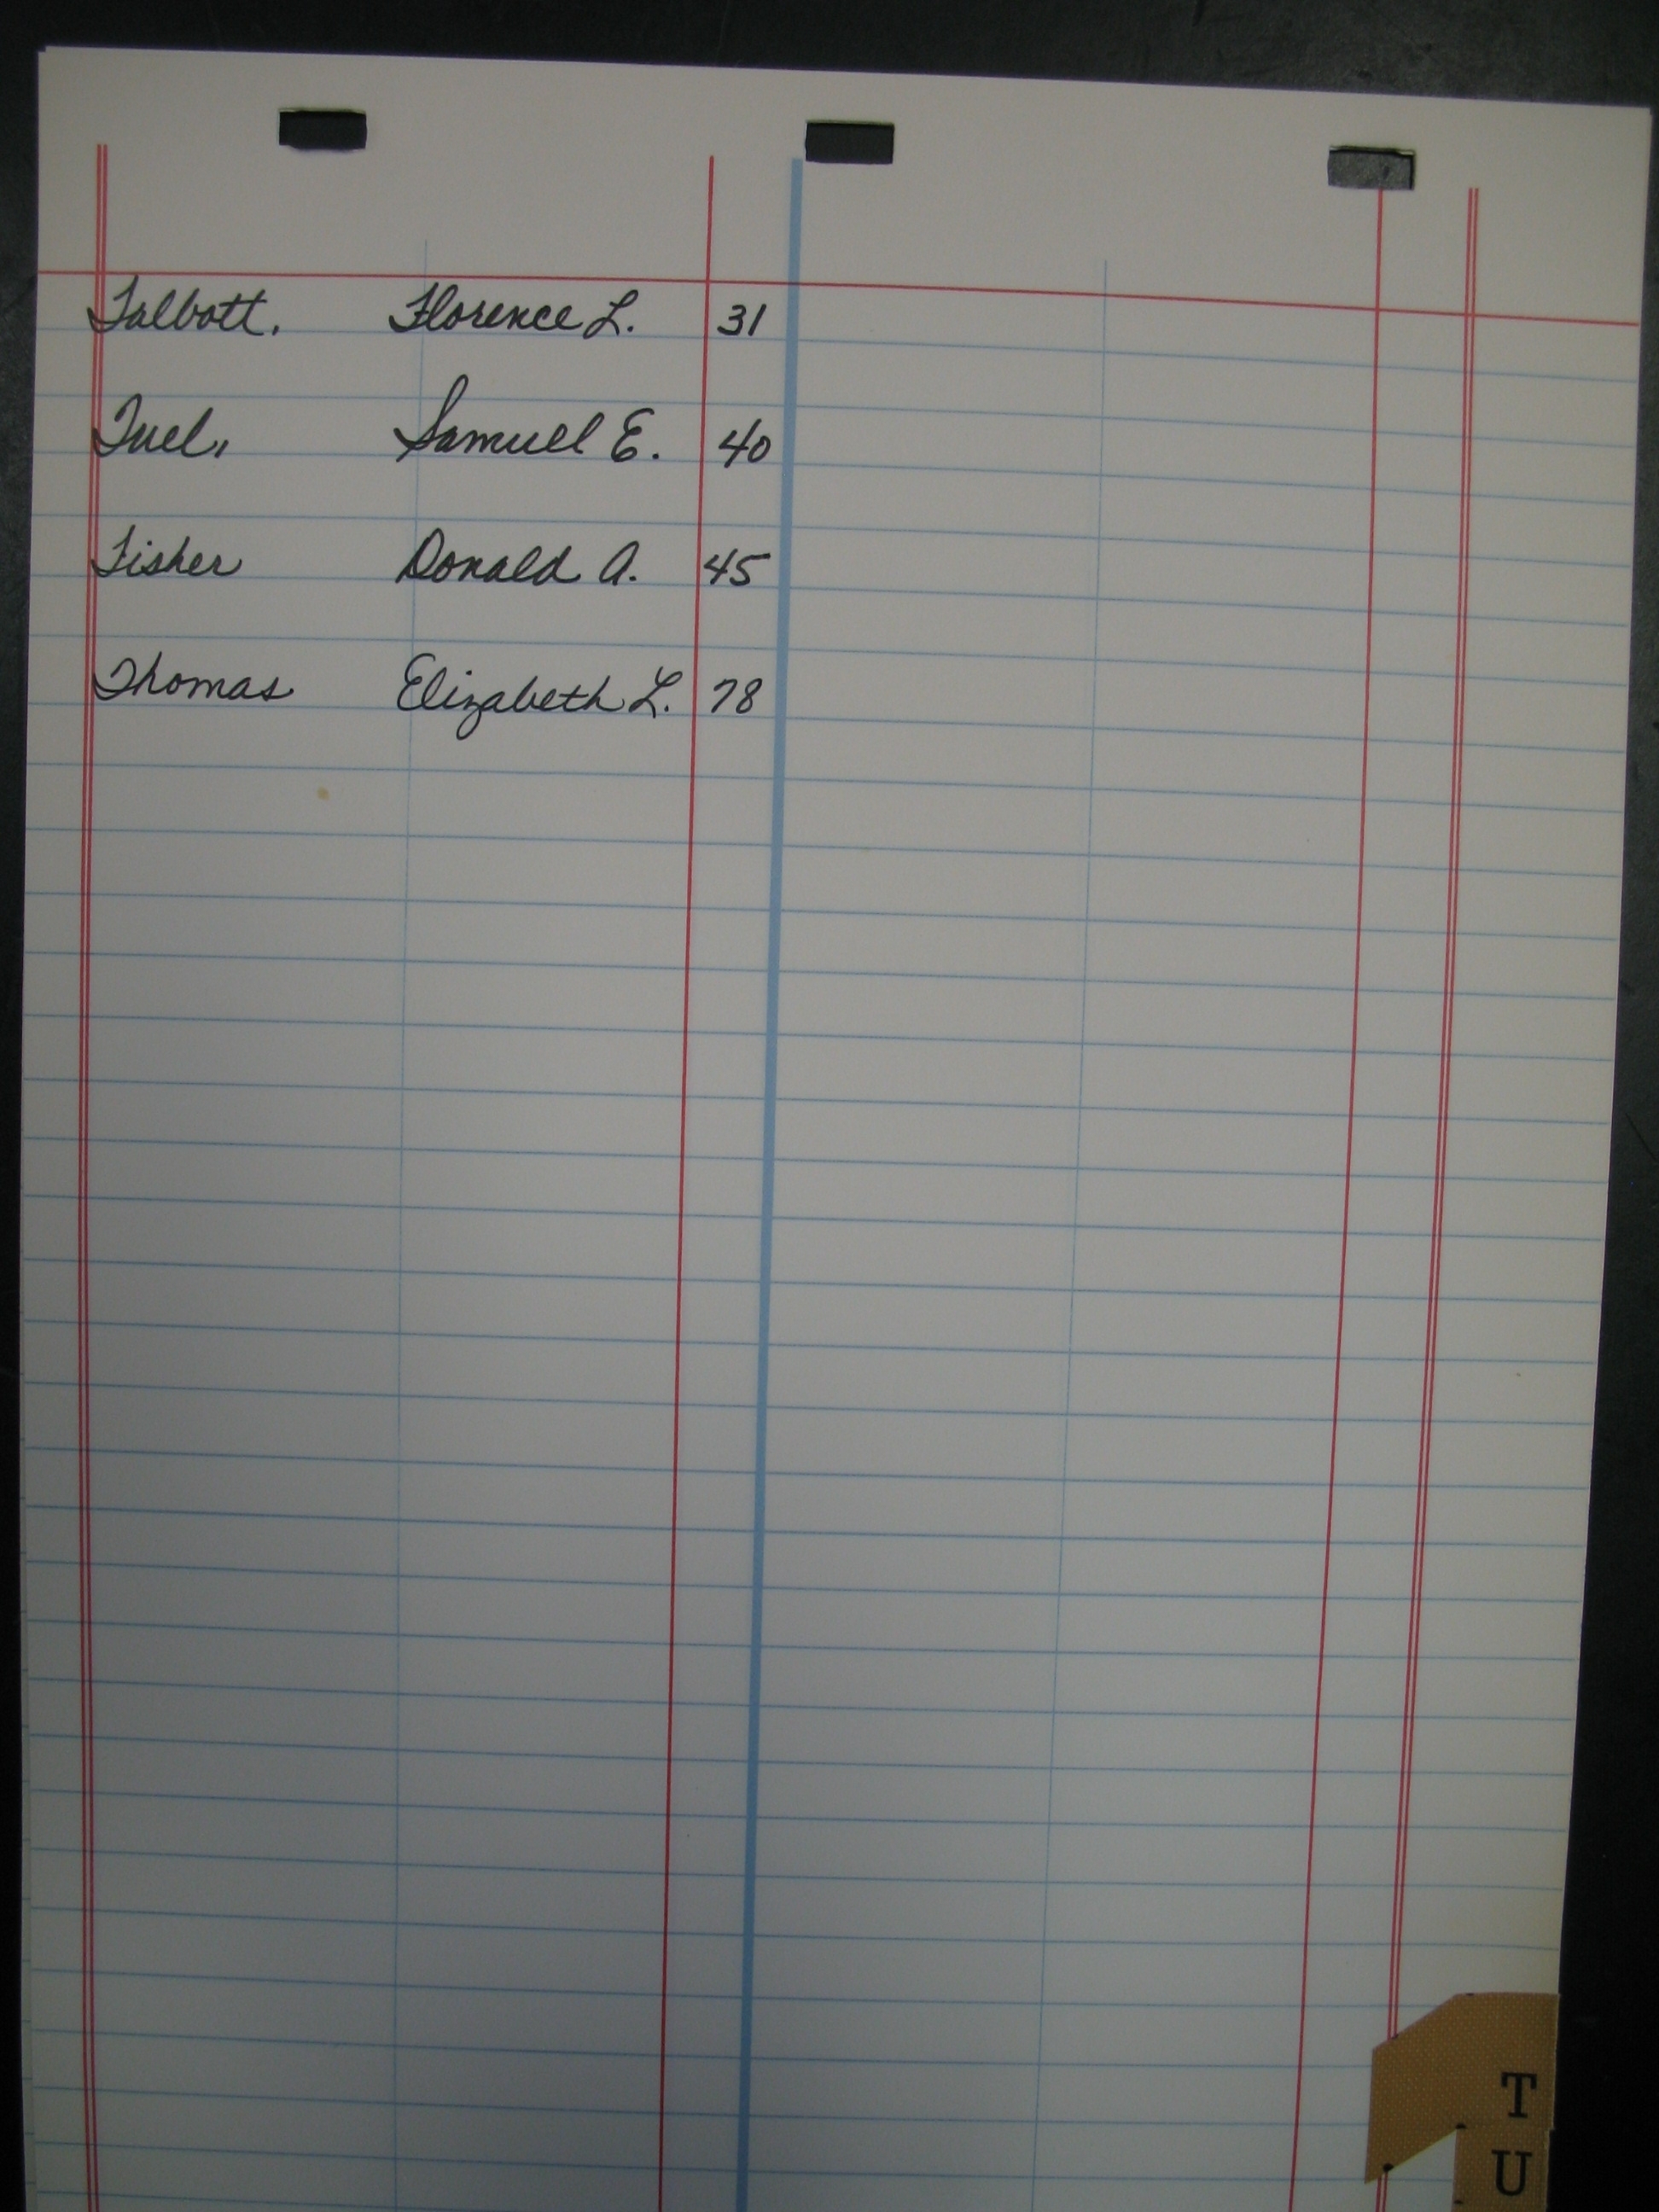 Talbott, Florence L. 31
Tuel, Samuel E. 40
Tisher Donald A. 45
Thomas Elizabeth L. 78
T
U